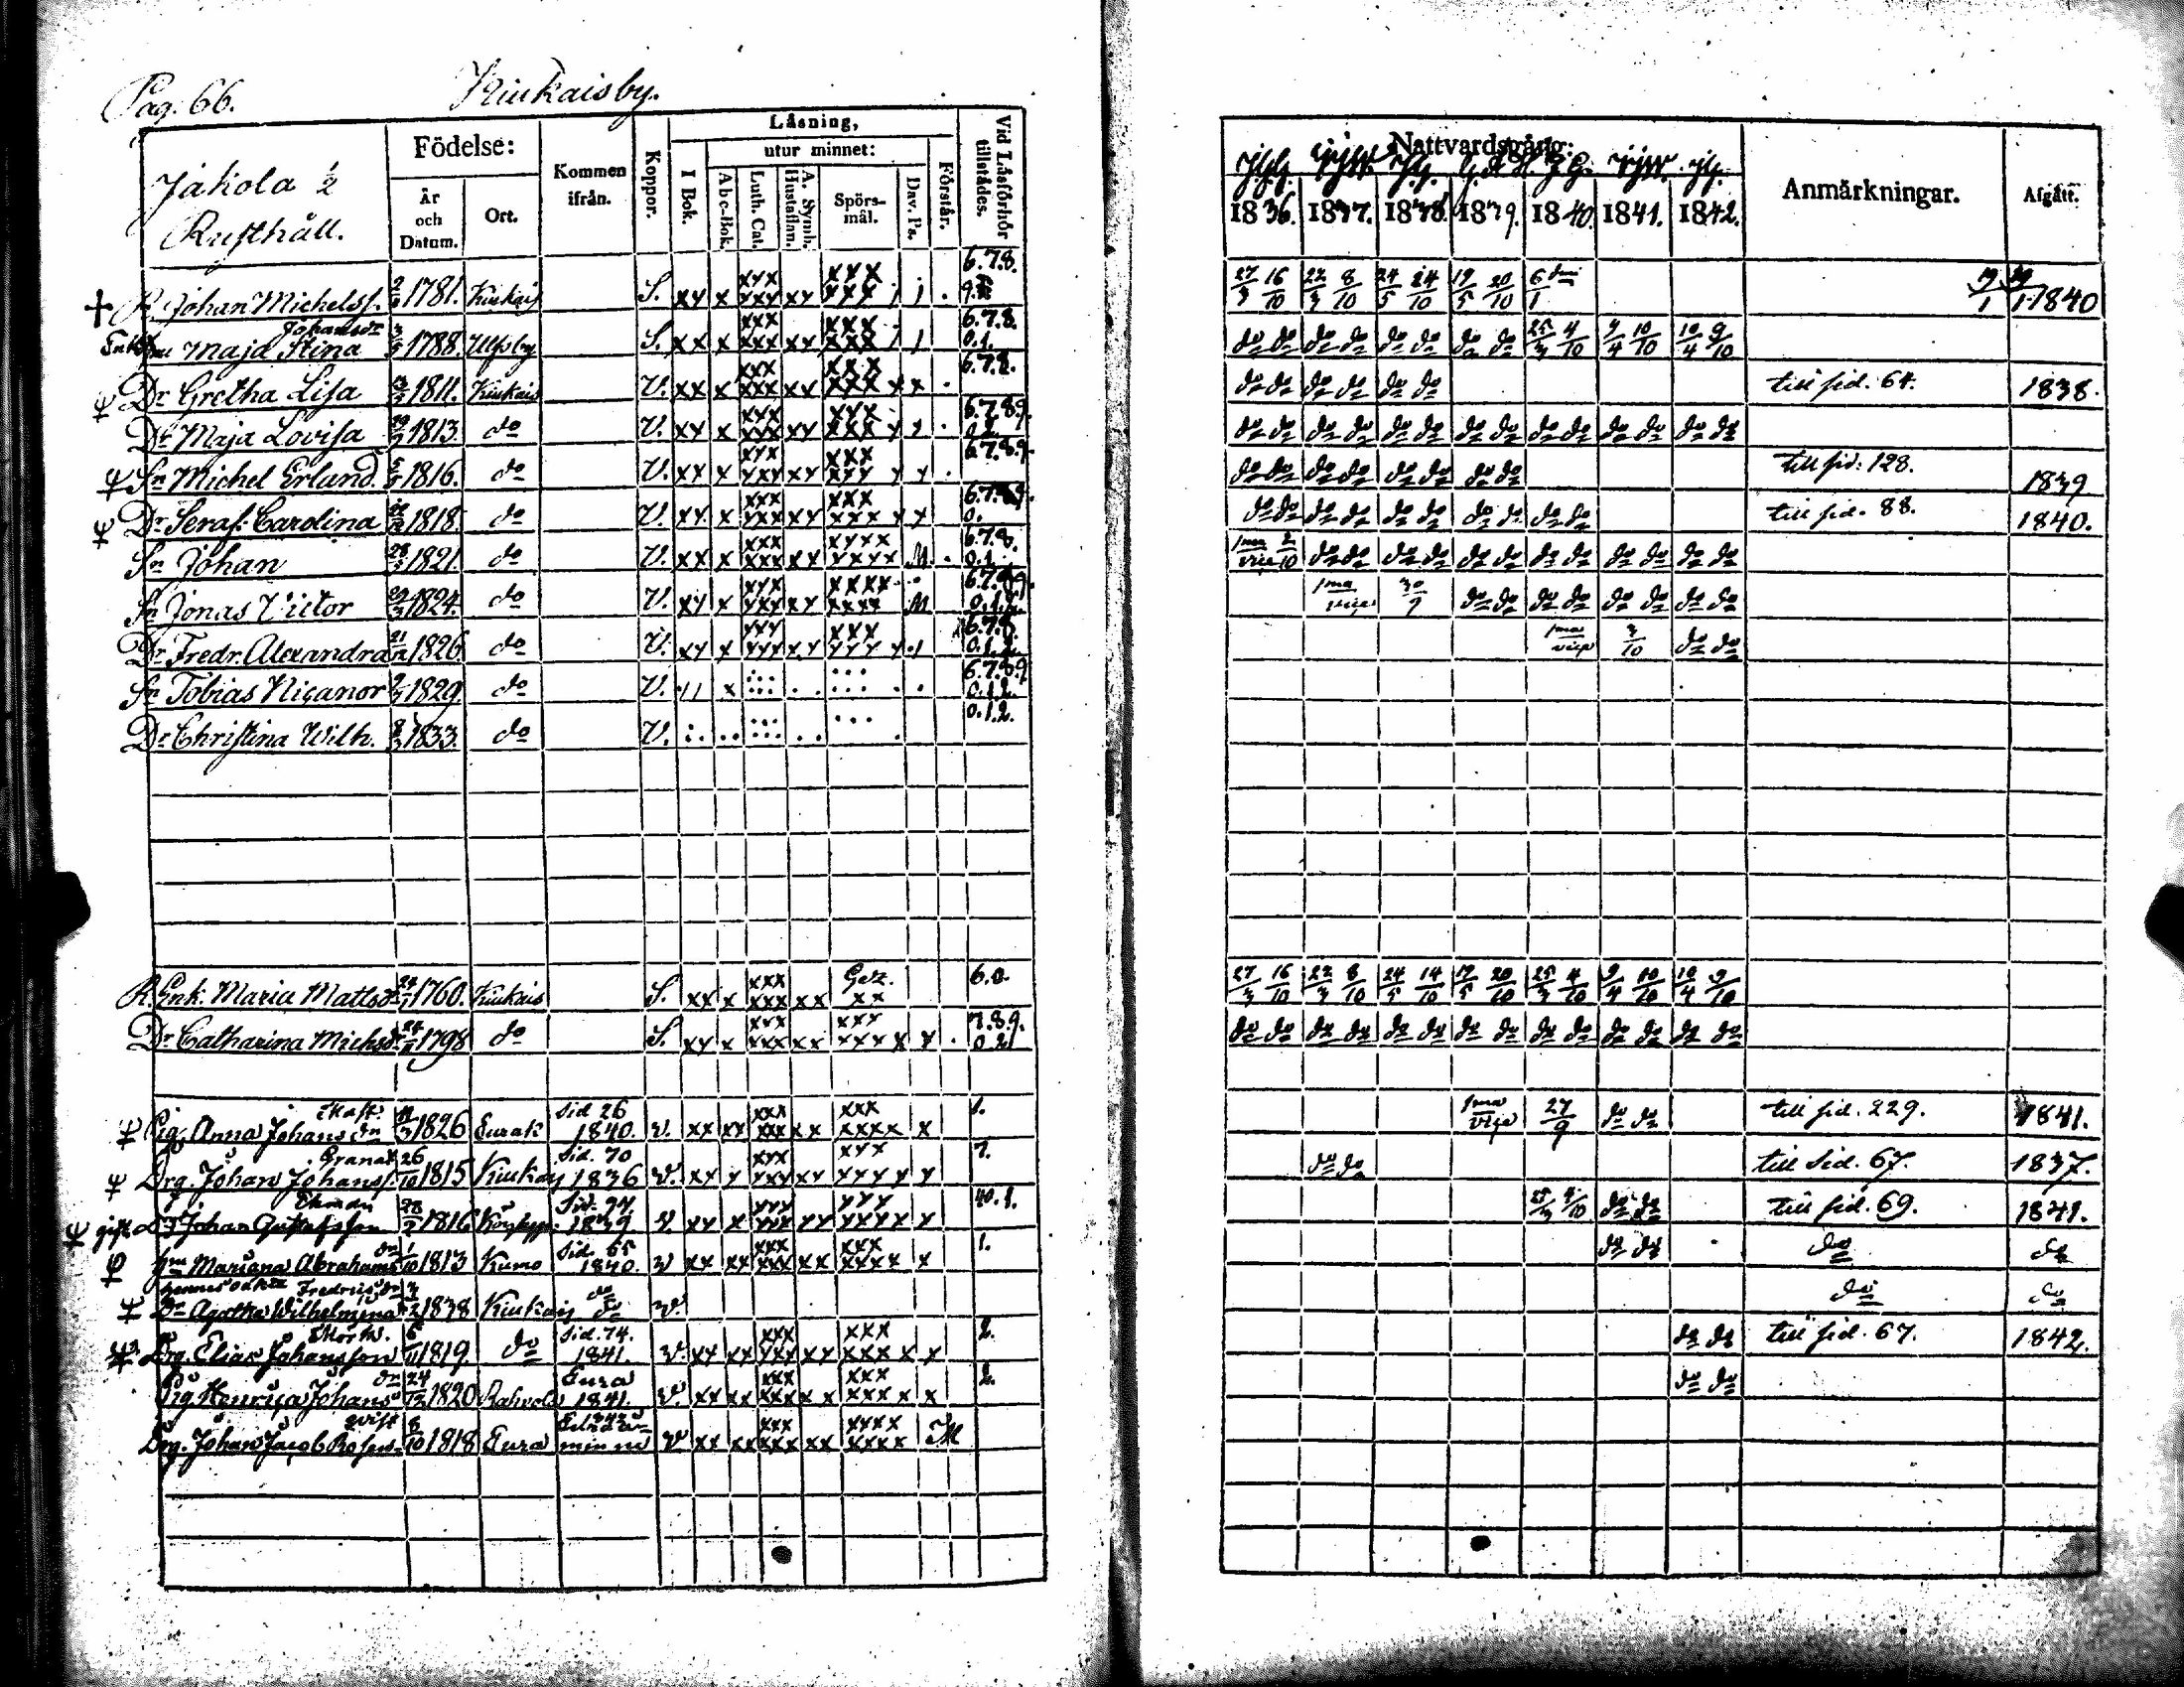 Pag. 66. Kiukaisby.
Jakola ½
Rusthåll.
Födelse:
År och Datum.
Ort.
Kommen ifrån.
Koppor.
Läsning,
I Bok.
utur minnet:
Abc-Bok.
Luth. Cat.
A. Symb. Hustaflan.
Spörsmål.
Dav. Ps.
Förstår.
Vid Läsförhör tillstädes.
Nattvardsgång:
1836. 1837. 1838. 1839. 1840. 1841. 1842.
Anmärkningar.
Afgått.
Johan Michelss. 1781. Kiukais S. xx x xxx xxx xx xxx xxx 6.7.8. 27/3 16/10 22/3 8/10 24/5 14/10 19/5 20/10 6/1 1840
Johansdr
Maja Stina 1788. Ulfsby S. xx x xxx xxx xx xxx xxx 6.7.8. 0.1. do do do do do do do do 25/3 4/10 9/4 10/10 10/4 9/10
Dr Gretha Lisa 1811. Kiukais V. xx x xxx xxx xx xxx xxx xx 6.7.8. do do do do do do till sid. 64. 1838.
Dr Maja Lovisa 1813. do V. xx x xxx xxx xx xxx xxx xx 6.7.8.9. do do do do do do do do do do do do do do
Sn Michel Erland 1816. do V. xx x xxx xxx xx xxx xxx x x 6.7.8.9. do do do do do do do do till sid: 128. 1839
Dr Seraf. Carolina 1818. do V. xx x xxx xxx xx xxx xxx xx 0. do do do do do do do do do do till sid. 88. 1840.
Sn Johan 28/3 1821. do V. xx x xxx xxx xx xxxx xxxx M 6.7.8. 0.1. 1ma vice 2/10 do do do do do do do do do do do do
Sn Jonas Victor 1824. do V. xx x xxx xxx xx xxxx xxxx M 1ma vice 30/9 do do do do do do do do
Dr Fredr. Alexandra 21/12 1826. do V. xx x xxx xxx xx xxx xxx 1ma vice 3/10 do do
Sn Tobias Nicanor 1829. do V. x 6.7.8.9 0.1.2.
Dr Christina Wilh. 1833. do V. 0.1.2.
R. Enk. Maria Mattsdr 1760. Kiukais S. xx x xxx xxx xx xx 6.0. 27/3 16/10 22/3 8/10 24/5 14/10 19/5 20/10 25/3 4/10 9/4 10/10 10/4 9/10
Dr Catharina Michsdr 1798 do S. xx x xxx xxx xx xxx xxx x x 7.8.9. 0.2. do do do do do do do do do do do do do do
Pig. Anna Johansdr 1826 Eurak Sid 26 1840. v. xx xx xxx xxx xx xxx xxxx x 1. 1ma vice 27/9 do do till sid. 229. 1841.
Granat
Drg. Johan Johanss. 26/10 1815 Kiukais Sid. 70 1836 v. xx x xxx xxx xx xxx xxxxx x 7. do do till Sid. 67. 1837.
Ekman
gift Johan Gustafsson 1816 Sid. 94 1839 v. xx x xxx xxx xx xxx xxxxx x 40.1. 25/3 4/10 do do till sid. 69. 1841.
Mariana Abrahamsdr 1/10 1813 Kumo Sid. 65 1840. v xx xx xxx xxx xx xxx xxxx x 1. do do do do
Hennes oäkta Fredrics dr
Dr Agatha Wilhelmina 1838 Kiukais do do v. do do
Drg. Elias Johansson 1819. do Sid. 74. 1841. v. xx xx xxx xxx xx xxx xxx x x 2. do do till sid. 67. 1842.
Pig. Henrica Johansdr 24/12 1820 Eura 1841. v. xx xx xxx xxx xx xxx xxx x x 2. do do
qvist
Drg. Johan Jacob Rosen- 8/10 1818 Eura v xx xx xxx xxx xx xxxx xxxx M